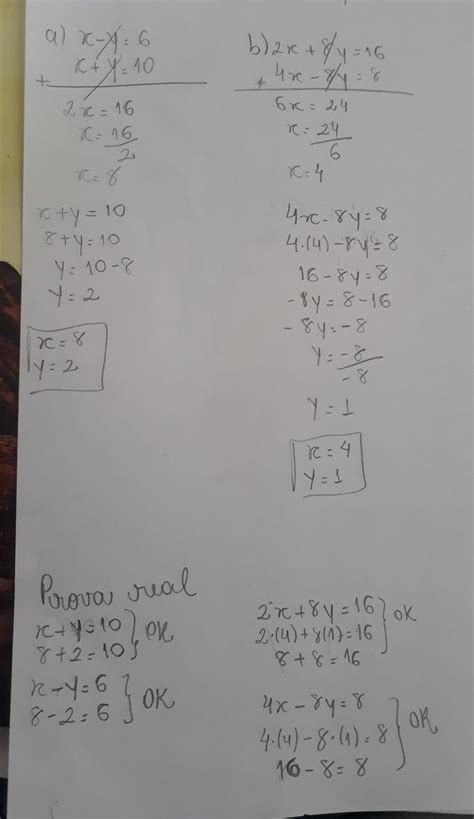 a) x-y=6
+ x+y=10
2x=16
x=16/2
x=8
x+y=10
8+y=10
y=10-8
y=2
x=8
y=2
b) 2x+8y=16
+ 4x-8y=8
6x=24
x=24/6
x=4
4x-8y=8
4.(4)-8y=8
16-8y=8
-8y=8-16
-8y=-8
y=-8/-8
y=1
x=4
y=1
Prova real
x+y=10
8+2=10 } OK
x-y=6
8-2=6 } OK
2x+8y=16
2.(4)+8(1)=16 } OK
8+8=16
4x-8y=8
4.(4)-8.(1)=8 } OK
16-8=8